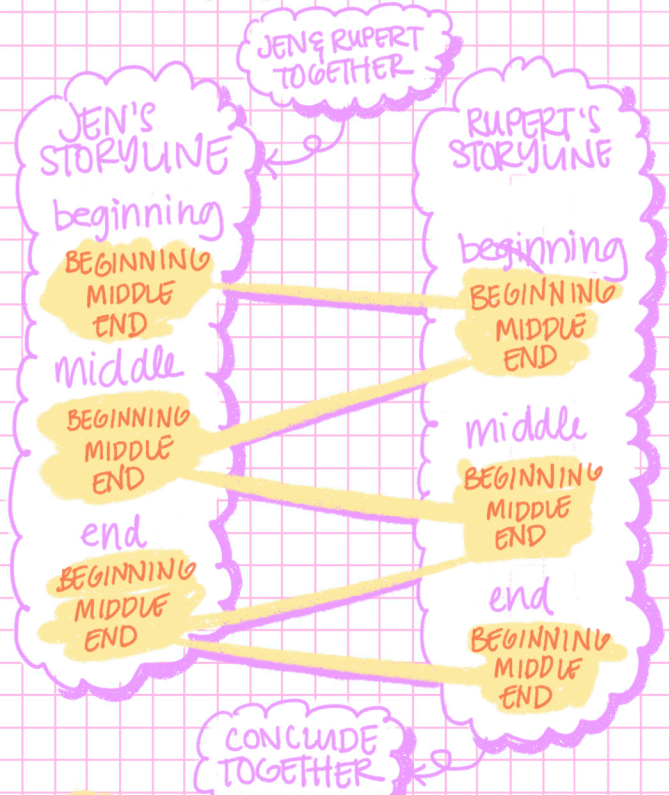 JEN & RUPERT
TOGETHER
JEN'S
STORYLINE
beginning
BEGINNING
MIDDLE
END
middle
BEGINNING
MIDDLE
END
end
BEGINNING
MIDDLE
END
RUPERT'S
STORYLINE
beginning
BEGINNING
MIDDLE
END
middle
BEGINNING
MIDDLE
END
end
BEGINNING
MIDDLE
END
CONCLUDE
TOGETHER